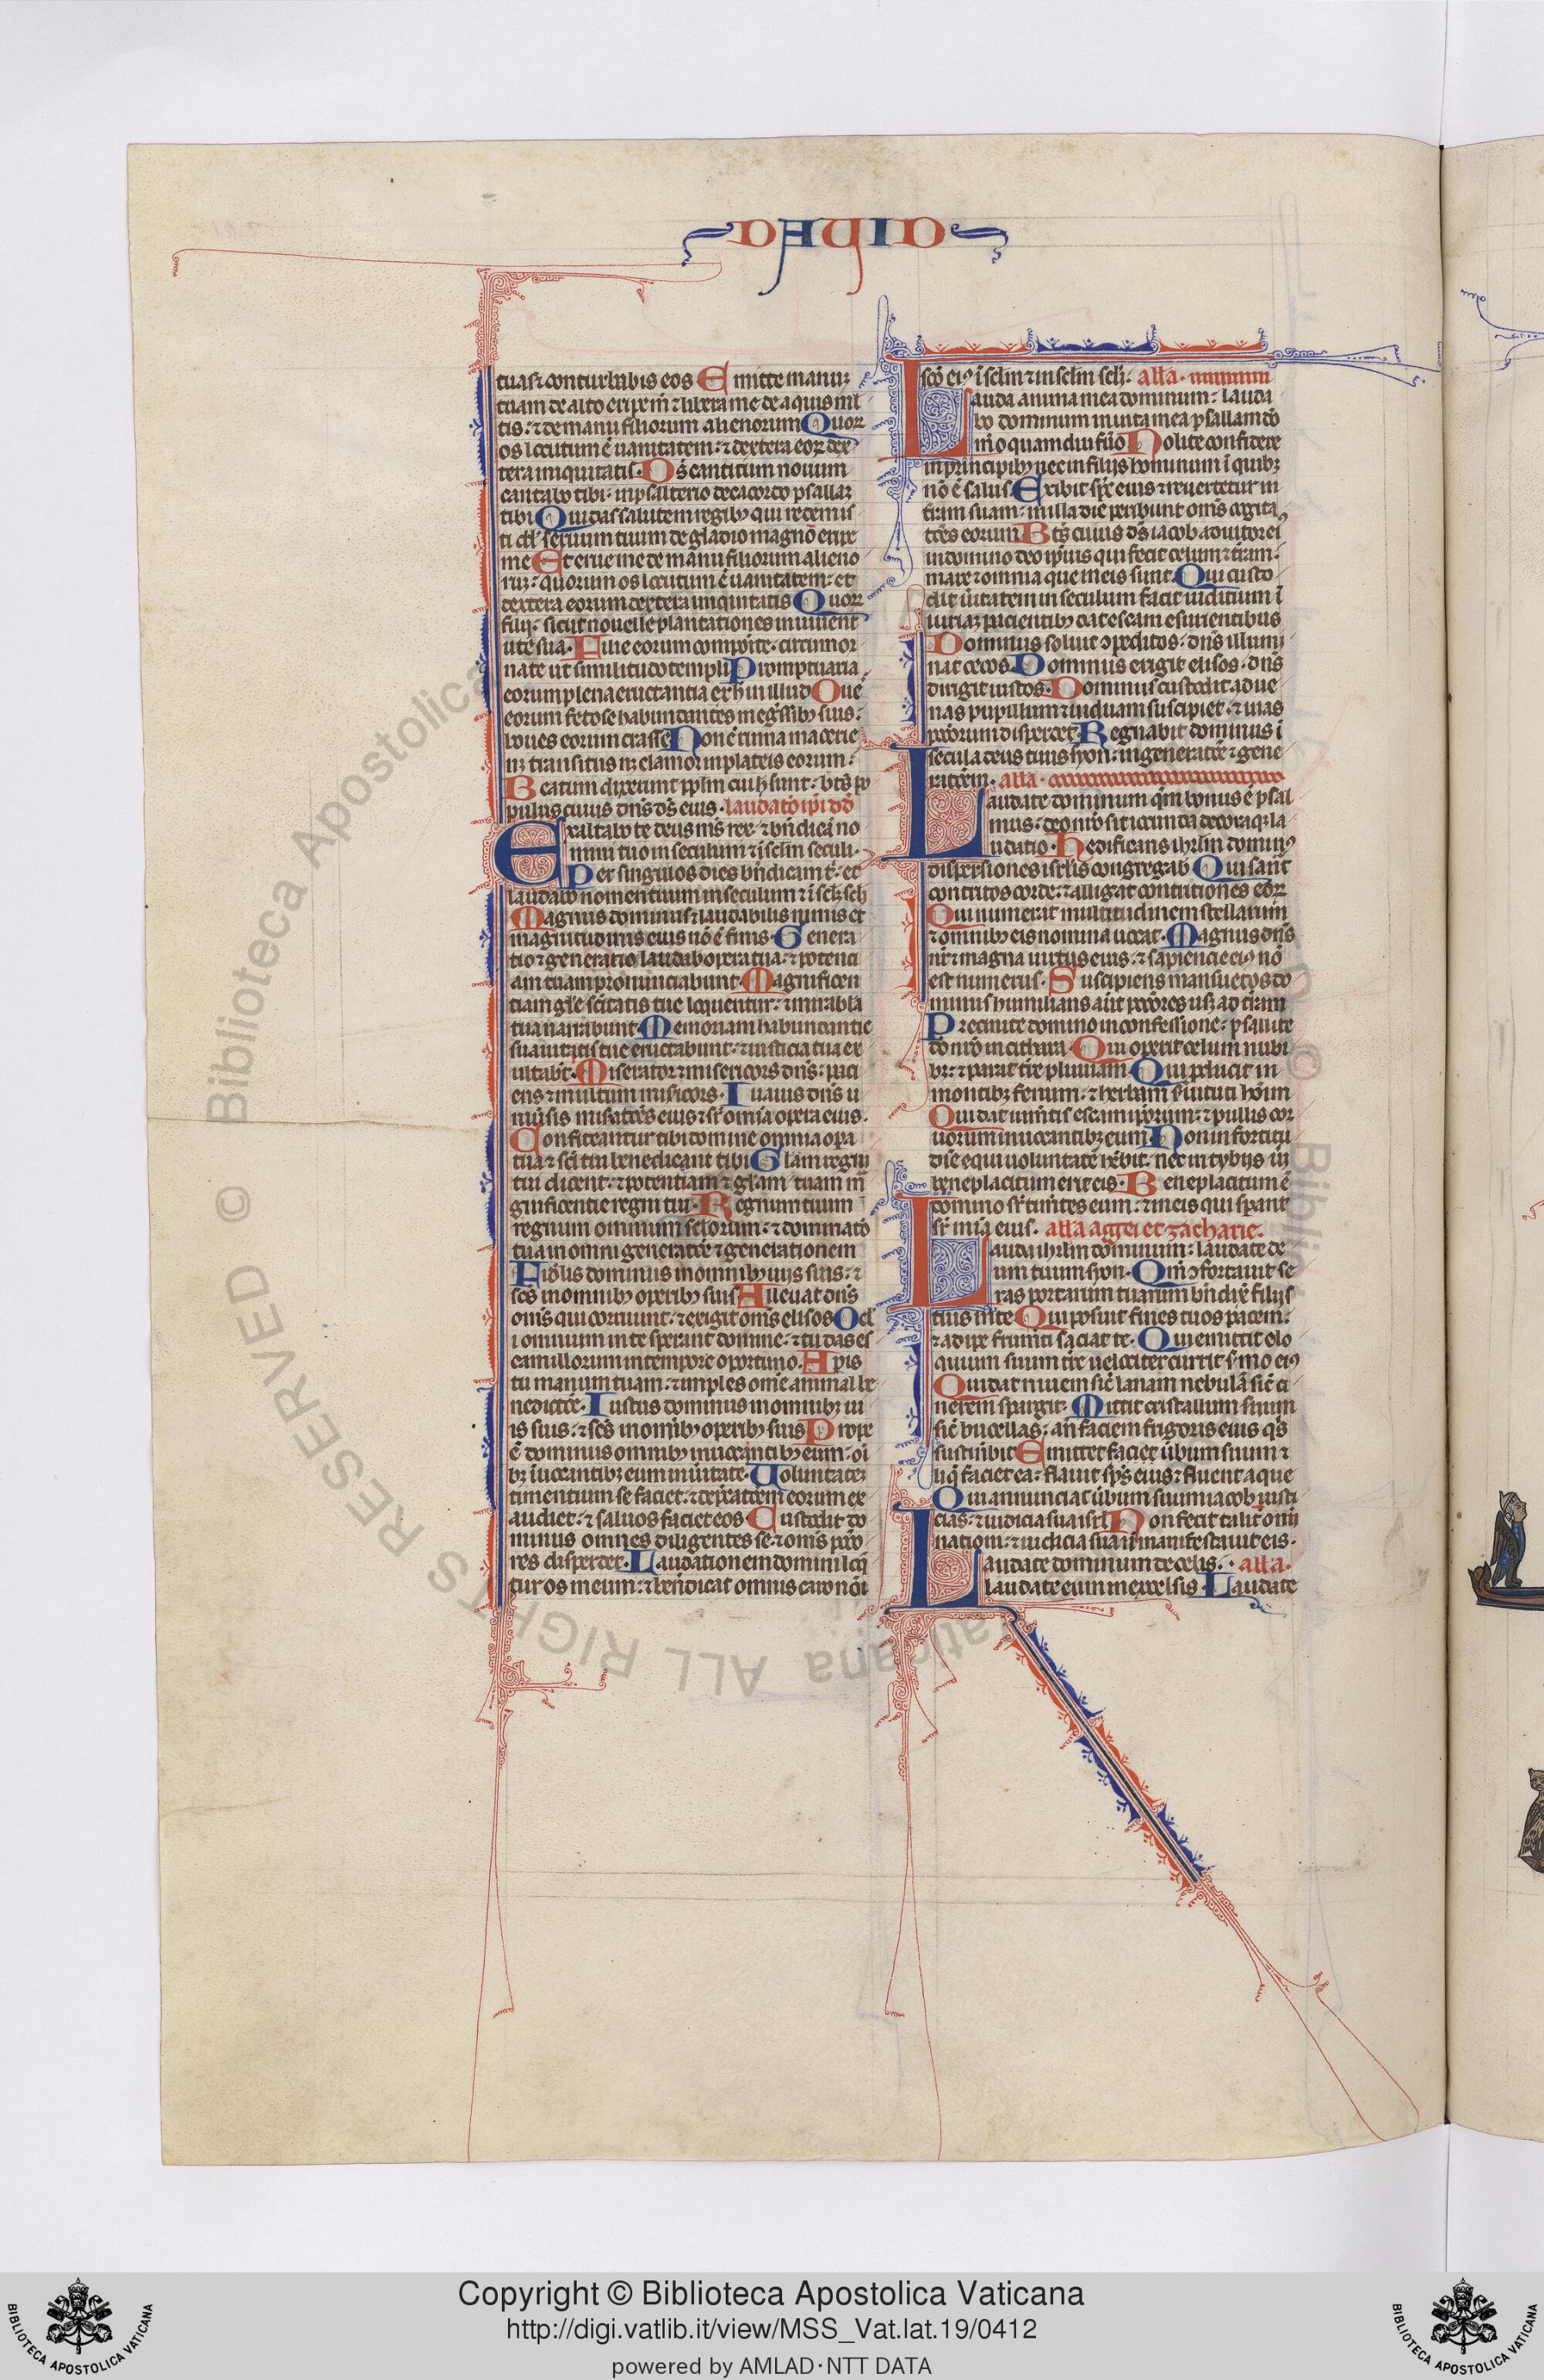 DAVID
tuas ⁊ conturbabis eos Emitte manuꝫ
tuam de alto eripe m̄ ⁊ libera me de aquis ml̄
tis : ⁊ de manu filiorum alienorum Quoꝝ
os locutum ē uanitatem : ⁊ dextera eoꝝ dex
tera iniquitatis . Ds̄ canticum nouum
cantabo tibi : in psalterio decacordo psallaꝫ
tibi Qui das salutem regibꝰ qui redemis
ti dd̄ seruum tuum de gladio magno eripe
me Et erue me de manu filiorum alieno
ruꝫ : quorum os locutum ē uanitatem : et
dextera eorum dextera iniquitatis Quoꝝ
filij : sicut nouelle plantationes in iuuent
ute sua . Filie eorum composite : circumor
nate ut similitudo templi Promptuaria
eorum plena eructantia ex h̄ in illud Oues
eorum fetose habundantes in egressibꝰ suis :
boues eorum crasse Non ē ruina macerie
neqꝫ transitus neqꝫ clamor in plateis eorum :
Beatum dixerunt ppl̄m cui h̄ sunt : bt̄s po
pulus cuius dn̄s ds̄ eius . laudatō ip̄i dd̄
Exaltabo te deus ms̄ rex : ⁊ bn̄dicā no
mini tuo in seculum ⁊ ī sclm̄ seculi .
Per singulos dies bn̄dicam t̄ : et
laudabo nomen tuum in seculum ⁊ ī sclꝫ scl̄i
Magnus dominus ⁊ laudabilis nimis et
magnitudinis eius nō ē finis . Genera
tio ⁊ generatio laudab opera tua : ⁊ potenti
am tuam pronunciabunt . Magnificen
tiam gl̄e sc̄itatis tue loquentur : ⁊ mirabl̄a
tua narrabunt . Memoriam habundantie
suauitatis tue eructabunt : ⁊ iusticia tua ex
ultabt̄ . Miserator ⁊ misericors dn̄s : paci
ens ⁊ multum misicors . Suauis dn̄s u
niūsis miserat̄oes eius ⁊ sr̄ omia opera eius .
Confiteantur tibi domine omnia opa
tua ⁊ sc̄i tui benedicant tibi Glam̄ regni
tui dicent : ⁊ potentiam ⁊ gl̄am tuam
gnificentie regni tui . Regnum tuum
regnum omnium sclorum : ⁊ dominatō
tua in omni generatōe ⁊ generationem
Fidelis dominus in omnibꝰ uijs suis : ⁊
sc̄s in omnibꝰ operibꝰ suis Alleuat dn̄s
om̄s qui corruunt : ⁊ erigit om̄s elisos Ocl̄
i omnium in te sperant domine : ⁊ tu das es
cam illorum in tempore oportuno . Apis
tu manum tuam : ⁊ imples om̄e animal be
nedictōe . Iustus dominus in omnibꝫ ui
is suis : ⁊ sc̄s in omībꝰ operibꝰ suis Prope
ē dominus omnibꝰ inuocantibꝰ eum : oī
bꝫ inuocantibꝫ eum in ūitate . Voluntateꝫ
timentium se faciet : ⁊ deprecatōem eorum ex
audiet : ⁊ saluos faciet eos Custodit do
minus omnes diligentes se : ⁊ om̄s pctō
res disperdet . Laudationem domini loq̄
tur os meum : ⁊ benedicat omnis caro nōi
sc̄o eiꝰ ī sclm̄ ⁊ in sclm̄ scl̄i . all̄a .
Lauda anima mea dominum : lauda
bo dominum in uita mea psallam dō
mō quamdiu fūo Nolite confidere
in principibꝰ nec in filijs hominum ī quibꝫ
nō ē salus . Exibit spc̄ eius ⁊ reuertetur in
tr̄am suam : in illa die peribunt om̄s cogita
tōes eorum Bt̄s cuius ds̄ iacob adiutor eiꝰ
in domino deo ip̄ius qui fecit celum ⁊ tr̄am :
mare ⁊ omnia que in eis sunt . Qui custo
dit ūitatem in seculum facit iuditium ī
iuriaꝫ pacientibꝰ dat escam esurientibus
Dominus soluit ↄpeditos : dn̄s illumi
nat cecos . Dominus erigit elisos : dn̄s
dirigit iustos . Dominus custodit adue
nas pupillum ⁊ uiduam suscipiet : ⁊ uias
pctōrum disperdet . Regnabit dominus ī
secula deus tuus syon : in generatōe ⁊ gene
ratōem . all̄a .
Laudate dominum qm̄ bonus ē psal
mus : deo nr̄o sit iocunda decoraqꝫ la
udatio . Hedificans ihrlm̄ dominꝰ
dispersiones isrl̄is congregab Qui sanat
contritos corde : ⁊ alligat contritiones eoꝝ
Qui numerat multitudinem stellarum
⁊ omnibꝰ eis nomina uocat . Magnus dn̄s
nr̄ ⁊ magna uirtus eius : ⁊ sapiencie eiꝰ nō
est numerus . Suscipiens mansuetos do
minus humilians aūt pctōres usqꝫ ad tr̄am
Precinite domino in confessione : psallite
dō nr̄o in cithara . Qui operit celum nubi
bꝫ : ⁊ parat tr̄e pluuiam . Qui producit in
montibꝫ fenum : ⁊ herbam ꝯuituti hoīm
Qui dat iumētis escam ip̄orum : ⁊ pullis cor
uorum inuocantibꝫ eum Non in fortitu
die equi uoluntatē hēbit : nec in tybijs uiri
beneplacitum erit ei . Beneplacitum ē
domino sr̄ tim̄tes eum : ⁊ in eis qui sperant
sr̄ mīa eius . all̄a aggei et zacharie .
Lauda ihrlm̄ dominum : laudate de
um tuum syon . Qm̄ ↄfortauit se
ras portarum tuarum bn̄dix̄ filijs
tuis in te Qui posuit fines tuos pacem :
⁊ adipe frum̄ti saciat te . Qui emittit elo
quium suum tr̄e uelociter currit ẜmo eiꝰ
Qui dat niuem sic̄ lanam nebulā sic̄ ci
nerem spargit . Mittit cristallum suum
sic̄ bucellas : an̄ faciem frigoris eius q̄s
sustinebit Emittet faciet ūbum suum ⁊
liq̄ faciet ea : flauit sps̄ eius ⁊ fluent aque
Qui annunciat ūbum suum iacob iusti
cias : ⁊ iudicia sua isrl̄ Non fecit talit̄ omī
nationi : ⁊ iudicia sua nō manifestauit eis .
Laudate dominum de celis : . all̄a .
laudate eum in excelsis . Laudate
© Biblioteca Apostolica Vaticana ALL RIGHTS RESERVED
Copyright © Biblioteca Apostolica Vaticana
http://digi.vatlib.it/view/MSS_Vat.lat.19/0412
powered by AMLAD·NTT DATA
BIBLIOTECA APOSTOLICA VATICANA
BIBLIOTECA APOSTOLICA VATICANA